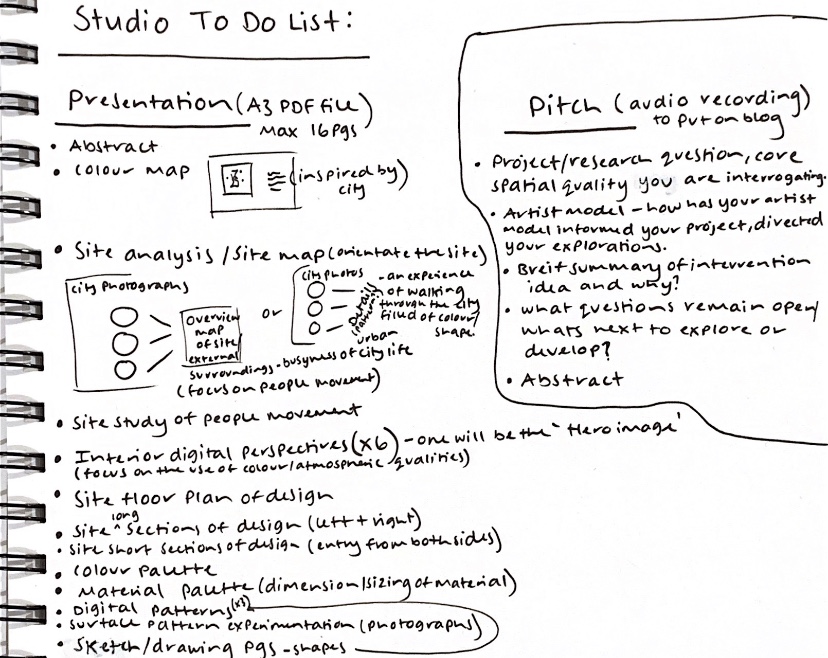 Studio To Do List:
Presentation (A3 PDF file)
Max 16pgs
• Abstract
• Colour map
(inspired by
city)
• Site analysis / Site map (orientate the site)
city photographs
overview
map
of site/
external
surroundings - busyness of city life
(focus on people movement)
or
city photos
Details
(patterns)
urban
- an experience
of walking
through the city
filled of colour/
shape
• Site study of people movement
• Interior digital perspectives (x6) - one will be the 'Hero image'
(focus on the use of colour/atmospheric qualities)
• Site floor plan of design
• Site long sections of design (left + right)
• Site short sections of design (entry from both sides)
• Colour palette
• Material palette (dimension/sizing of material)
• Digital patterns (x3)
• Surface pattern experimentation (photographs)
• Sketch/drawing pgs - shapes
Pitch (audio recording)
to put on blog
• Project/research question, core
spatial quality you are interrogating.
• Artist model - how has your artist
model informed your project, directed
your explorations.
• Breif summary of intervention
idea and why?
• what questions remain open/
whats next to explore or
develop?
• Abstract